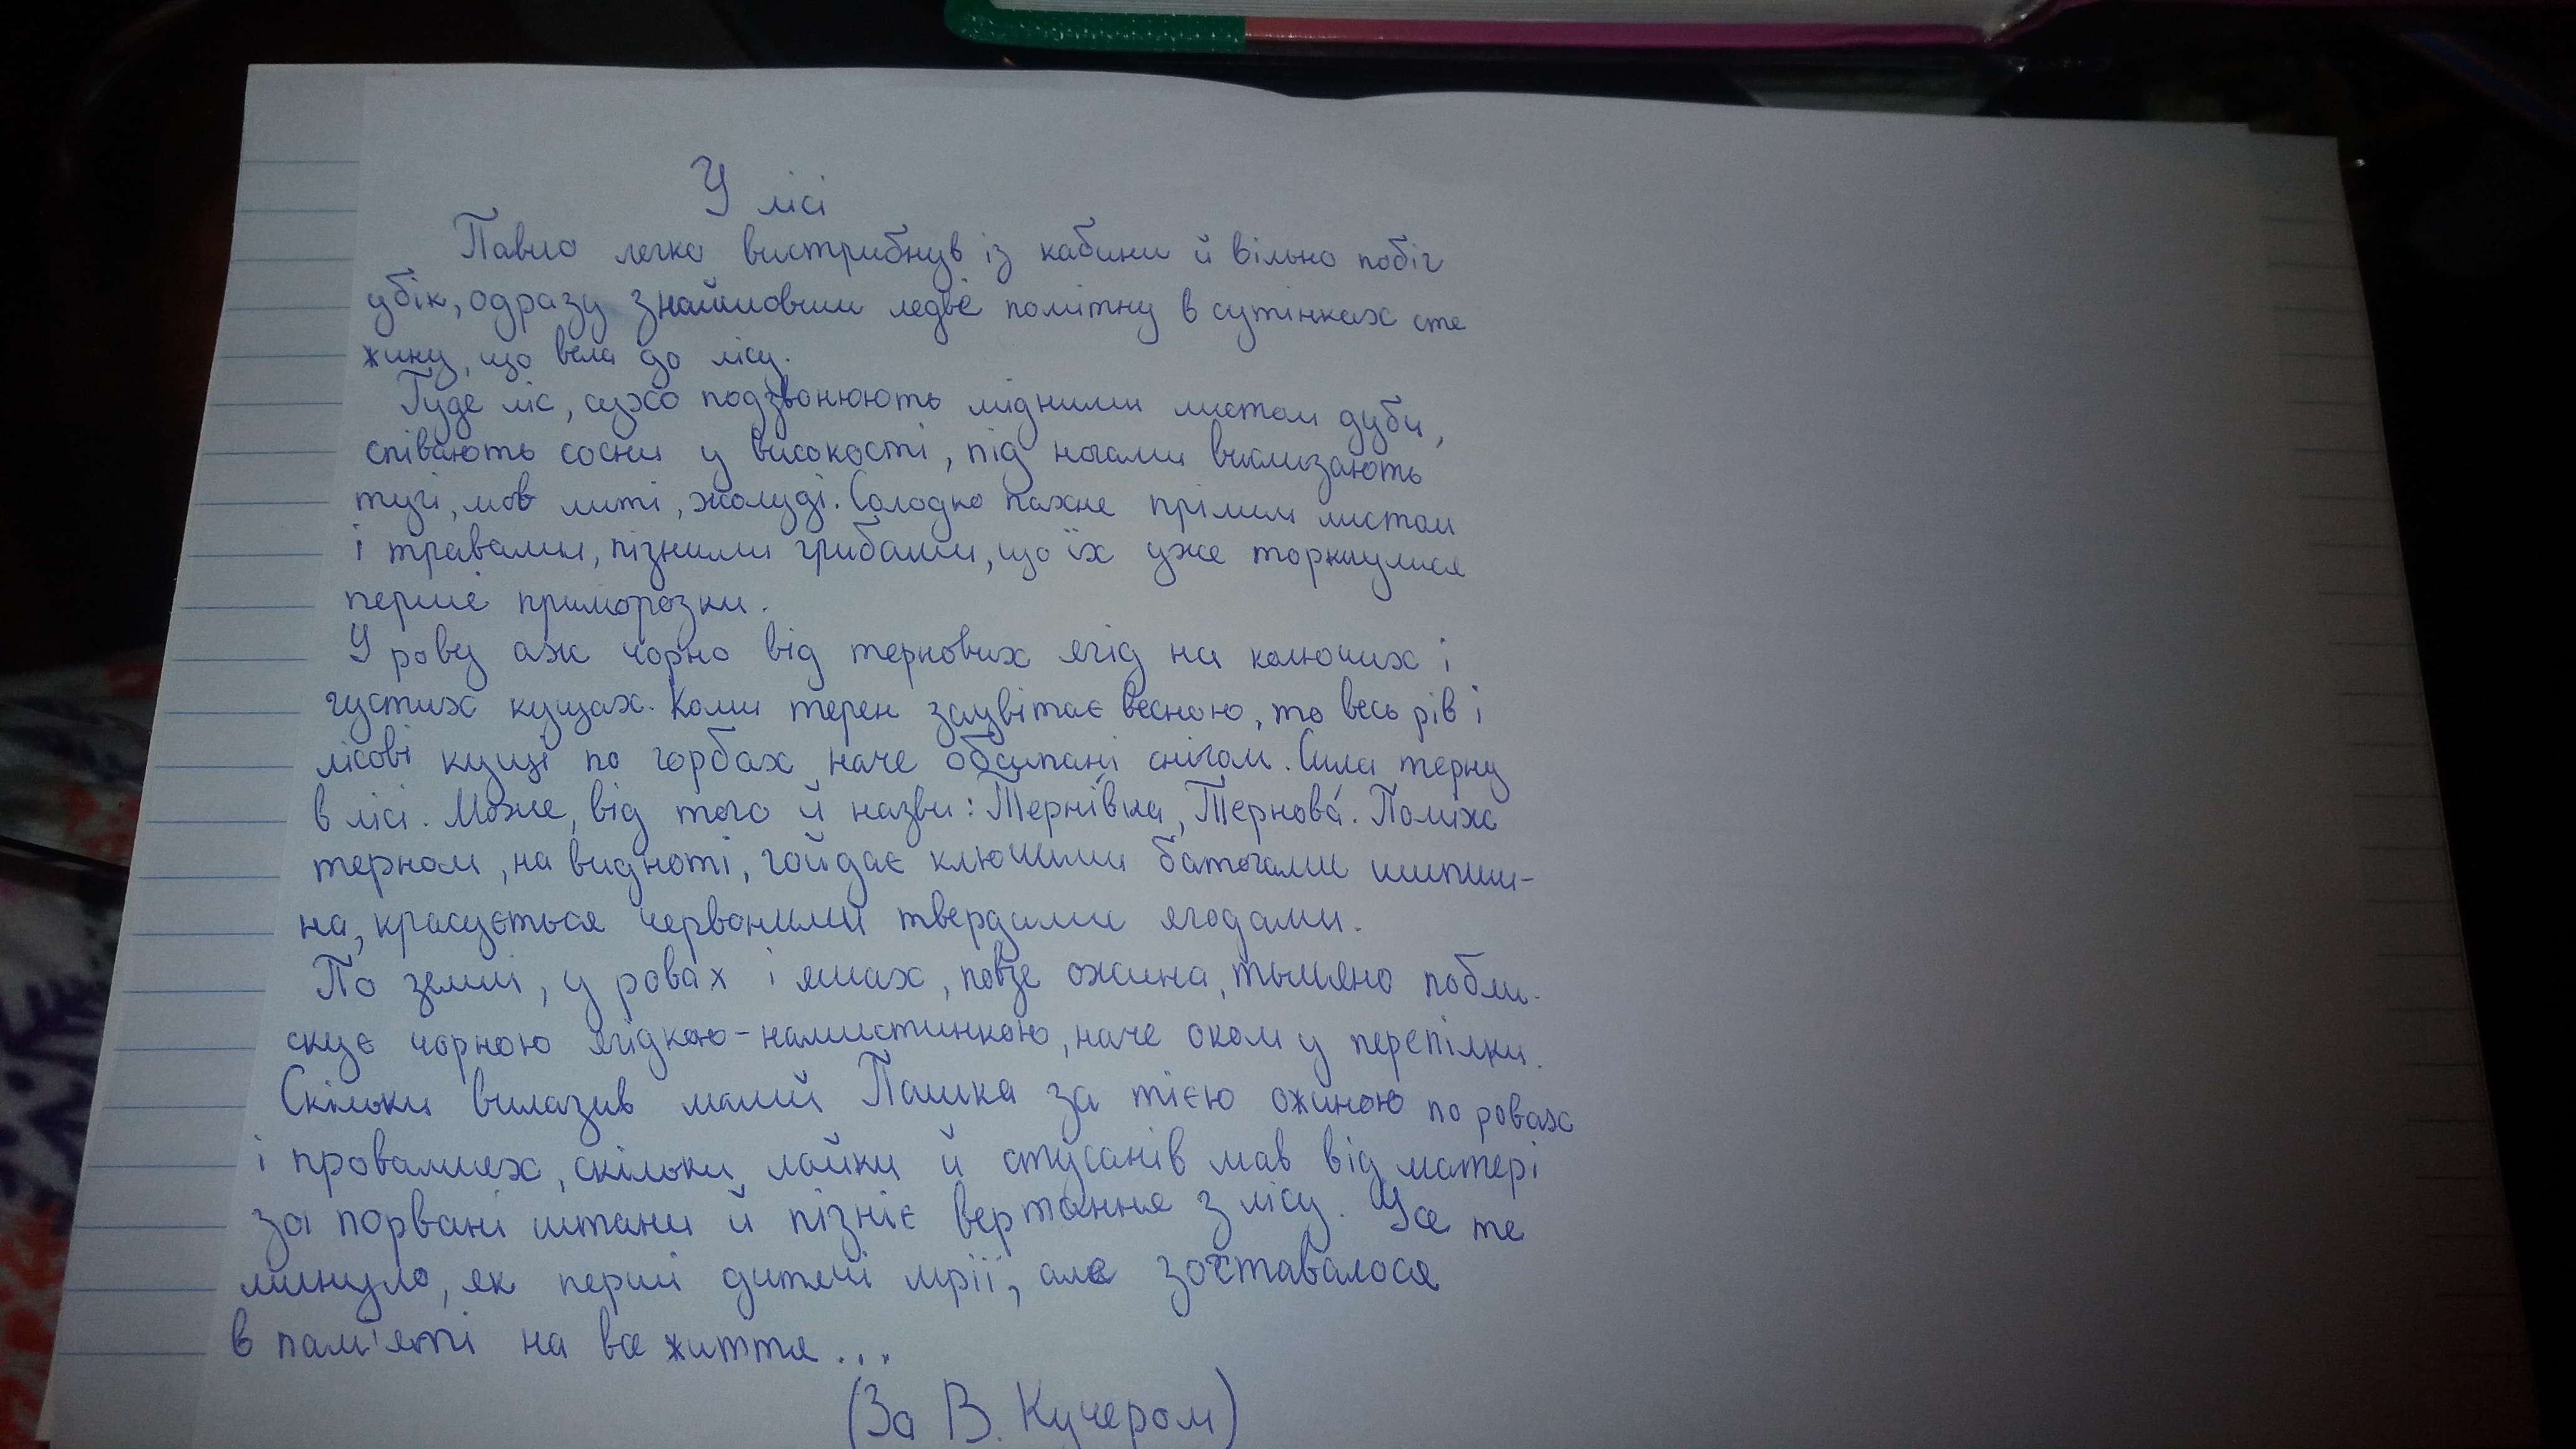 У лісі
Павло легко вистрибнув із кабини й вільно побіг
убік, одразу знайшовши ледве помітну в сутінках сте
жину, що вела до лісу.
Гуде ліс, сухо подзвонюють мідними листом дуби,
співають сосни у високості, під ногами вислизають
тугі, мов литі, жолуді. Солодко пахне прілим листом
і травами, пізніми грибами, що їх уже торкнулися
перші приморозки.
У рову аж чорно від тернових ягід на колючих і
густих кущах. Коли терен зацвітає весною, то весь рів і
лісові кущі по горбах наче обсипані снігом. Сила терну
в лісі. Може, від того й назви: Терні́вка, Тернова́. Поміж
терном, на видноті, гойдає ключими батогами шипши-
на, красується червоними твердими ягодами.
По землі, у ровах і ямах, повзе ожина, тьмяно побли-
скує чорною ягідкою-намистинкою, наче оком у перепілки.
Скільки вилазив малий Пашка за тією ожиною по ровах
і проваллях, скільки лайки й стусанів мав від матері
за порвані штани й пізнє вертання з лісу. Усе те
минуло, як перші дитячі мрії, але зоставалося
в пам'яті на все життя...
(За В. Кучером)